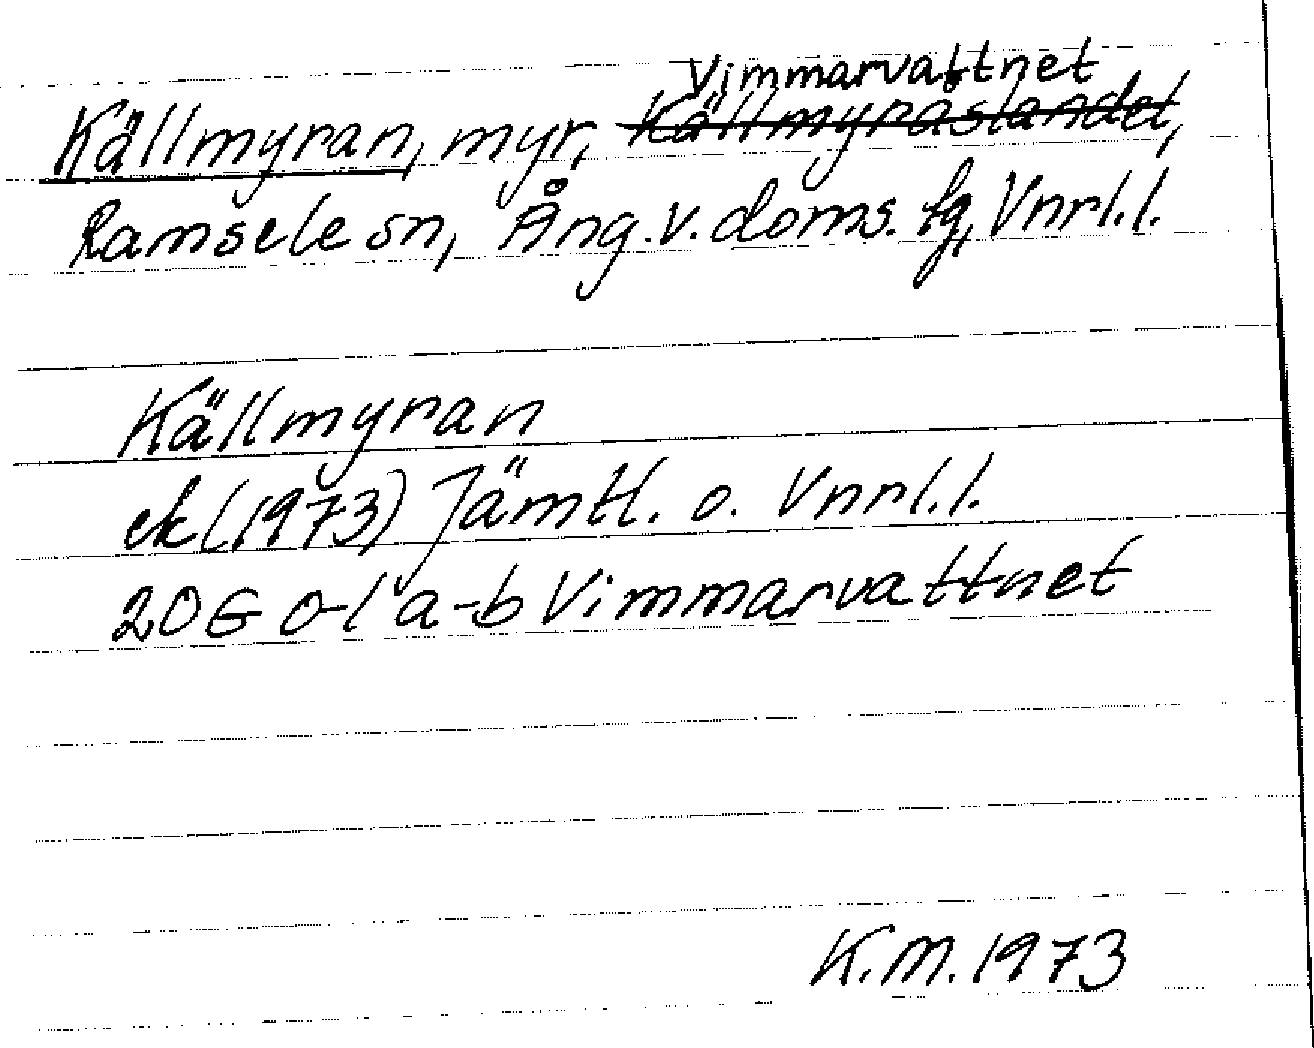 Vimmarvattnet
Källmyran, myr, Källmyråslandet,
Ramsele sn, Ång. v. doms. fg, Vnrl. l.
Källmyran
ek (1973) Jämtl. o. Vnrl. l.
20G 0-1 a-b Vimmarvattnet
K.M. 1973